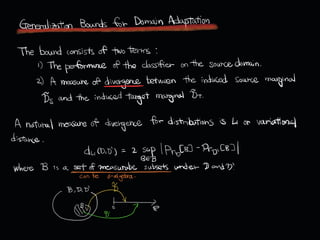 Generalization Bounds for Domain Adaptation
The bound consists of two terms :
1) The performance of the classifier on the source domain.
2) A measure of divergence between the induced source marginal
D̃s and the induced target marginal D̃T.
A natural measure of divergence for distributions is L1 or variational
distance.
dL1(D,D') = 2 sup |PrD[B] - PrD'[B]|
B∈B
where B is a set of measurable subsets under D and D'
can be σ-algebra.
B, D, D'